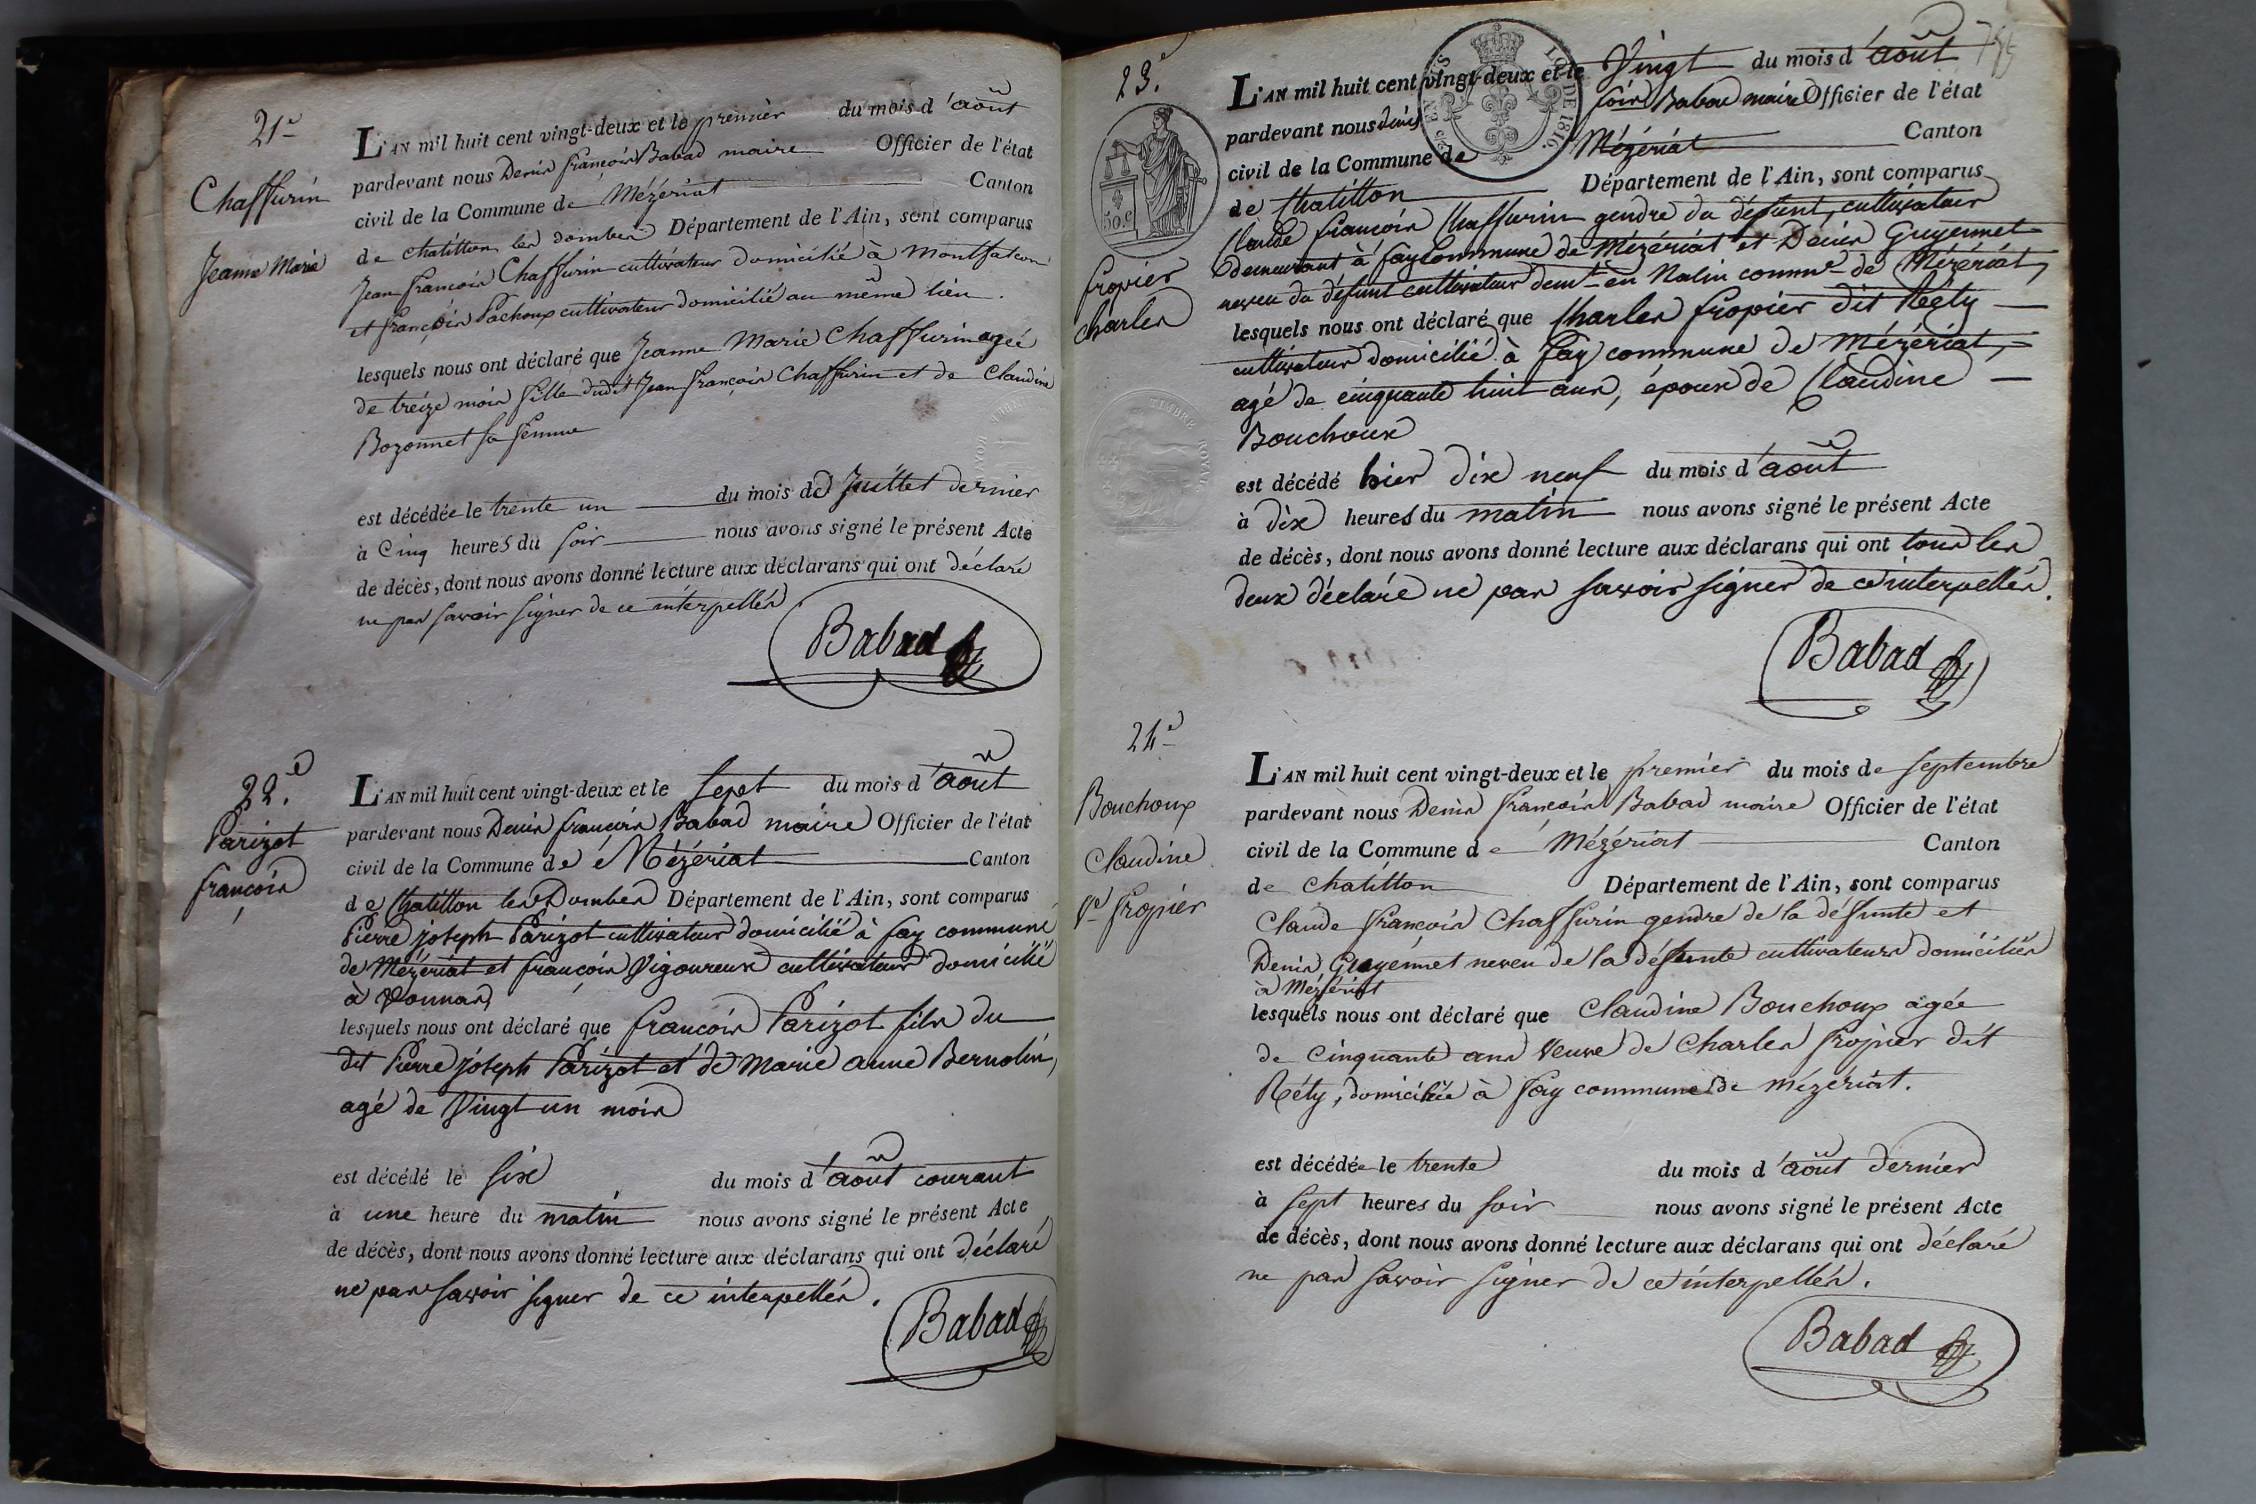 21e
Chaffurin
Jeanne Marie
L'AN mil huit cent vingt-deux et le premier du mois d'août
pardevant nous Denis françois Babad maire Officier de l'état
civil de la Commune de Mézériat Canton
de chatillon les dombes Département de l'Ain, sont comparus
Jean françois Chaffurin cultivateur domicilié à Montfalcon
et françois Pachoux cultivateur domicilié au même lieu.
lesquels nous ont déclaré que Jeanne Marie Chaffurin agée
de treize mois fille dudit Jean françois Chaffurin et de Claudine
Bozonnet sa femme
est décédée le trente un du mois de Juillet dernier
à Cinq heures du soir nous avons signé le présent Acte
de décès, dont nous avons donné lecture aux déclarans qui ont déclaré
ne pas savoir signer de ce interpellés
Babad
22.e
Parizot
françois
L'AN mil huit cent vingt-deux et le sept du mois d'août
pardevant nous Denis françois Babad maire Officier de l'état
civil de la Commune de Mézériat Canton
de Chatillon les Dombes Département de l'Ain, sont comparus
Pierre joseph Parizot cultivateur domicilié à fay commune
de Mézériat et françois Vigoureux cultivateur domicilié
à Vonnas,
lesquels nous ont déclaré que françois Parizot fils du
dit Pierre joseph Parizot et de Marie anne Bernolin,
agé de Vingt un mois
est décédé le six du mois d'août courant
à une heure du matin nous avons signé le présent Acte
de décès, dont nous avons donné lecture aux déclarans qui ont déclaré
ne pas savoir signer de ce interpellés.
Babad
23.e
50.c
TIMBRE ROYAL
fropier
charles
L'AN mil huit cent vingt-deux et le Vingt du mois d'août
pardevant nous denis fois Babad maire Officier de l'état
civil de la Commune de Mézériat Canton
de Chatillon Département de l'Ain, sont comparus
Claude françois Chaffurin gendre du défunt, cultivateur
demeurant à fay Commune de Mézériat et Denis Guyennet
neveu du défunt cultivateur demt en Nalin commne de Mézériat,
lesquels nous ont déclaré que Charles fropier dit Réty
cultivateur domicilié à fay commune de Mézériat,
agé de cinquante huit ans, époux de Claudine
Bouchoux
est décédé hier dix neuf du mois d'août
à dix heures du matin nous avons signé le présent Acte
de décès, dont nous avons donné lecture aux déclarans qui ont tous les
deux déclaré ne pas savoir signer de ce interpellés.
Babad
24e
Bouchoux
Claudine
Ve fropier
L'AN mil huit cent vingt-deux et le premier du mois de septembre
pardevant nous Denis françois Babad maire Officier de l'état
civil de la Commune de Mézériat Canton
de chatillon Département de l'Ain, sont comparus
Claude françois Chaffurin gendre de la défunte et
Denis Guyennet neveu de la défunte cultivateurs domiciliés
à Mézériat
lesquels nous ont déclaré que Claudine Bouchoux agée
de Cinquante ans Veuve de Charles fropier dit
Réty, domiciliée à fay commune de Mézériat.
est décédée le trente du mois d'août dernier
à sept heures du soir nous avons signé le présent Acte
de décès, dont nous avons donné lecture aux déclarans qui ont déclaré
ne pas savoir signer de ce interpellés.
Babad